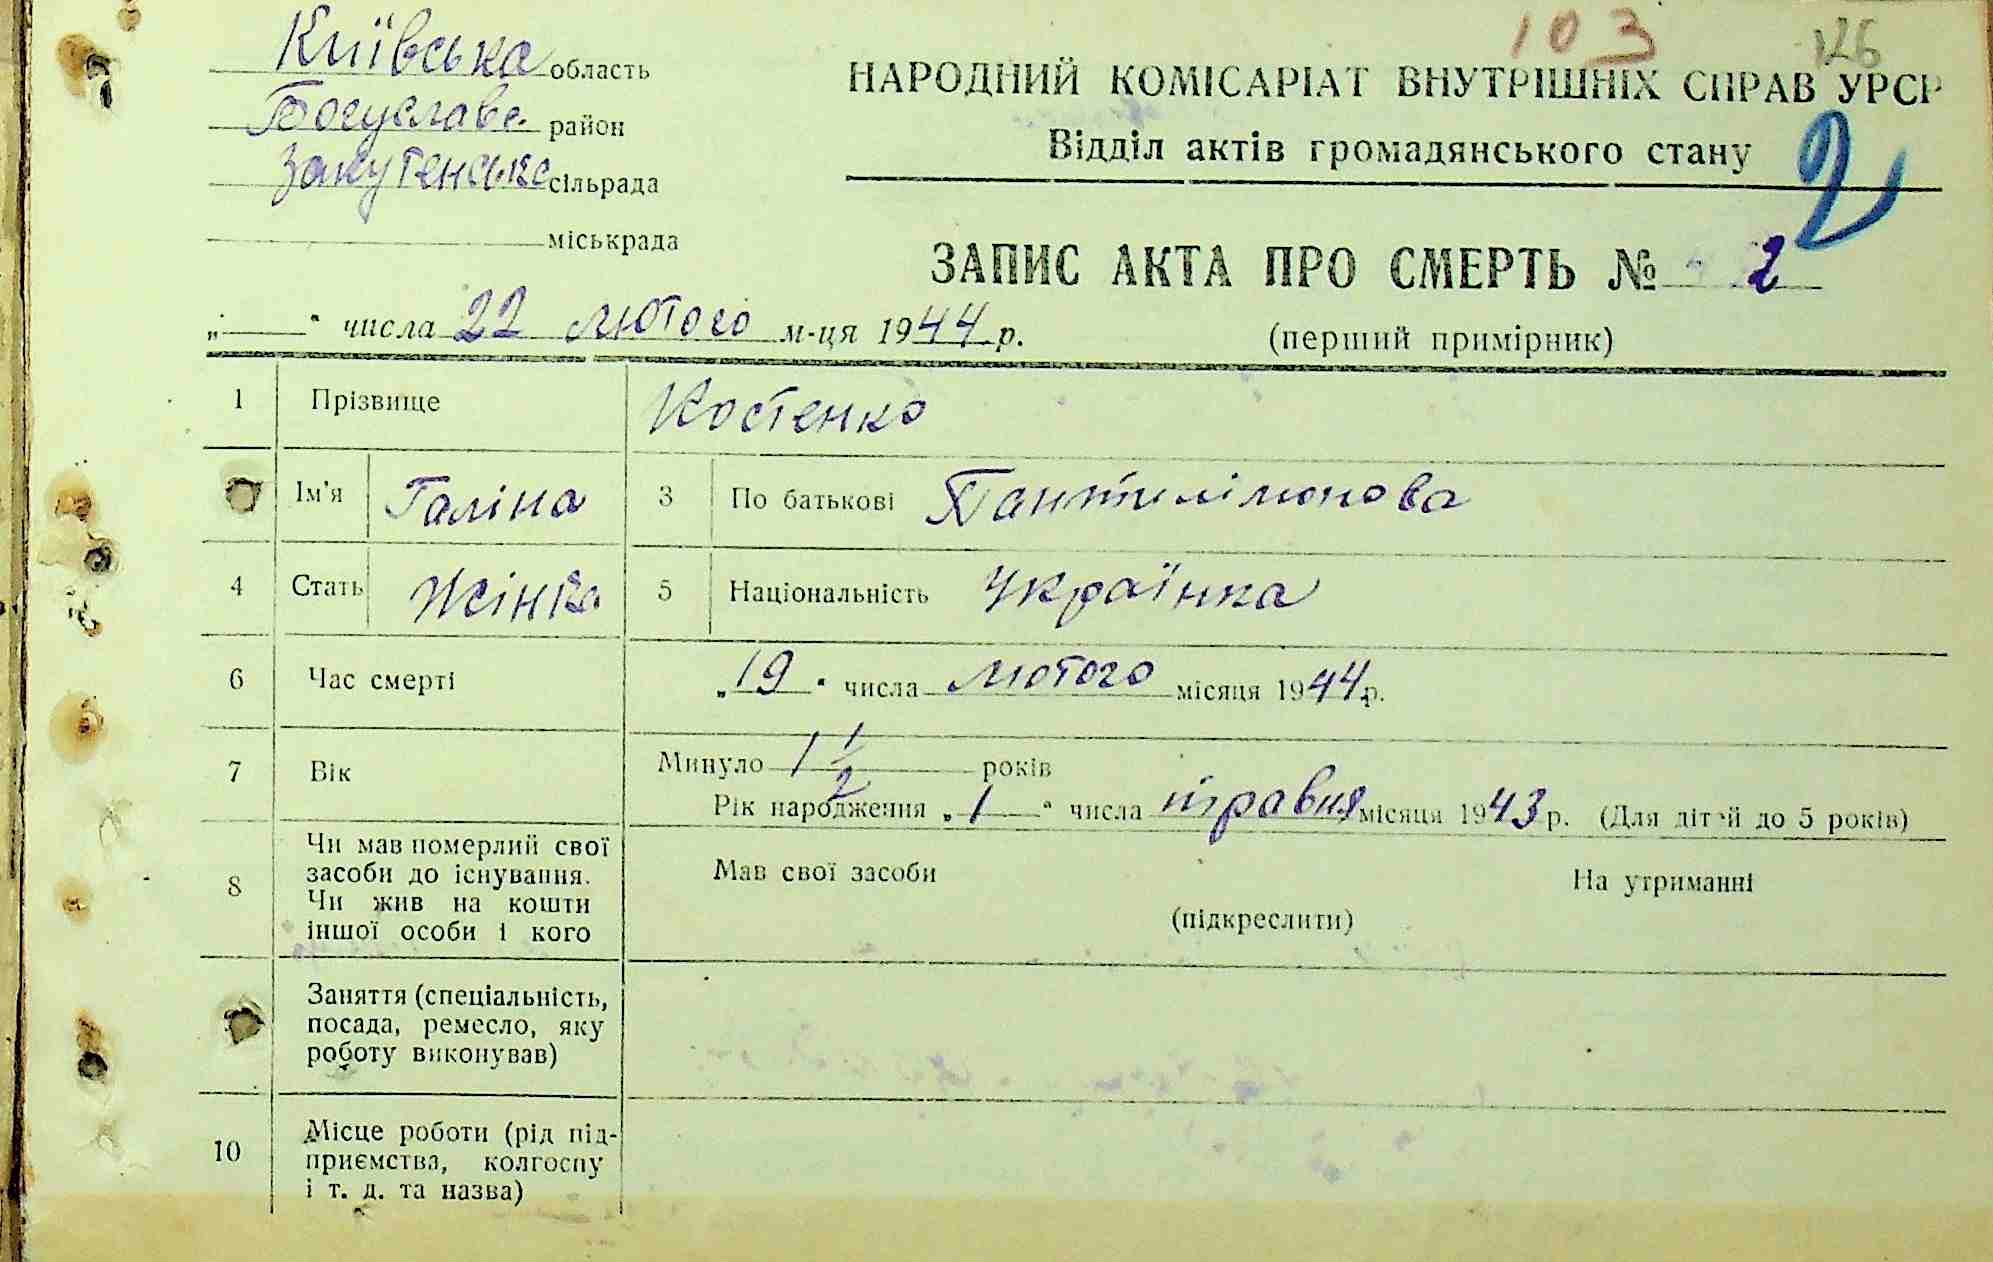 103 126
Київська область
НАРОДНИЙ КОМІСАРІАТ ВНУТРІШНІХ СПРАВ УРСР
Богуславс. район
Відділ актів громадянського стану
2
Закутенська сільрада
міськрада
ЗАПИС АКТА ПРО СМЕРТЬ № 2
„ “ числа 22 лютого м-ця 1944 р.
(перший примірник)
1 Прізвище Костенко
Ім'я Галіна 3 По батькові Пантилімонова
4 Стать Жінка 5 Національність Українка
6 Час смерті „19“ числа лютого місяця 1944 р.
7 Вік Минуло 1 1/2 років
Рік народження „1“ числа травня місяця 1943 р. (Для дітей до 5 років)
8 Чи мав померлий свої
засоби до існування.
Чи жив на кошти
іншої особи і кого
Мав свої засоби На утриманні
(підкреслити)
Заняття (спеціальність,
посада, ремесло, яку
роботу виконував)
10 Місце роботи (рід під-
приємства, колгоспу
і т. д. та назва)